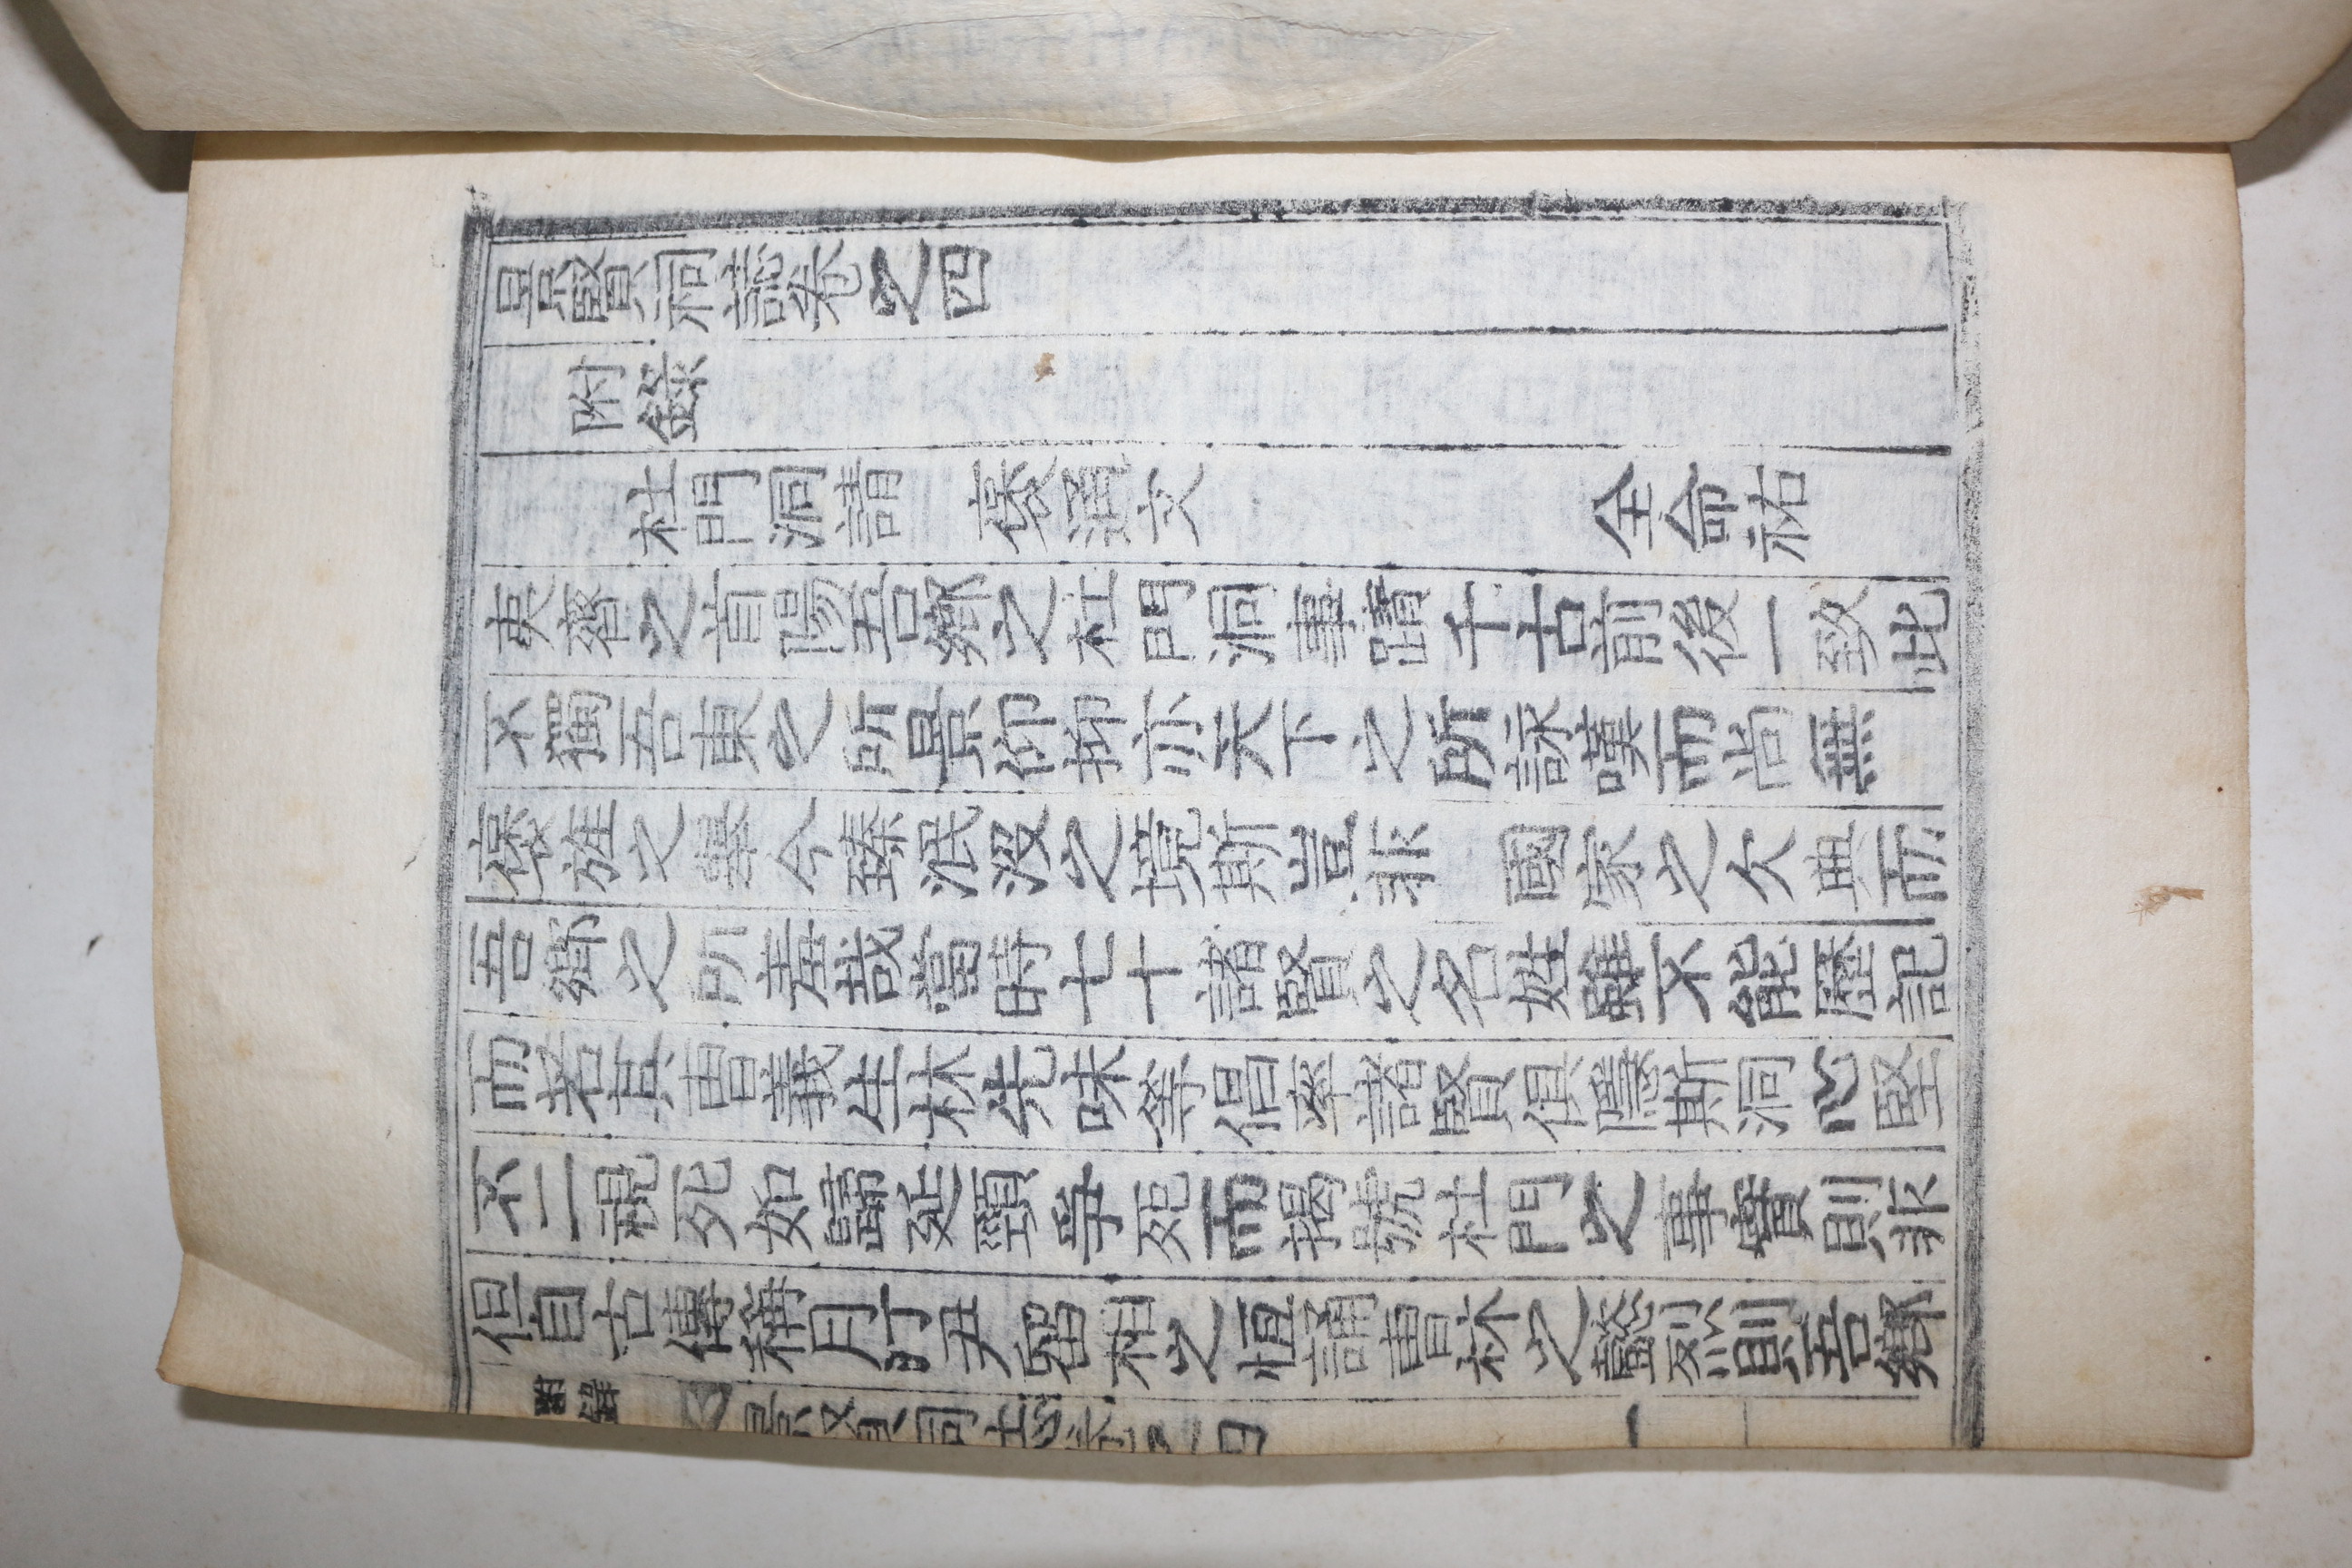 景賢祠誌卷之四
附錄
杜門洞請 褒通文 全命祐
夷齊之首陽吾鄉之杜門洞事蹟千古前後一致此
不獨吾東之所景仰抑亦天下之所詠嘆而尚無
褒旌之擧今臻泯沒之境斯豈非 國家之欠典而
吾鄉之所羞哉當時七十諸賢之名姓雖不能歷記
而若其曺義生林先味等倡率諸賢俱隱斯洞心堅
不二視死如歸延頸爭死而揭號杜門之事實則非
但自古傳稱月汀尹留相之恒誦曺林之懿烈則吾鄉
附錄 景賢祠誌卷之四 一